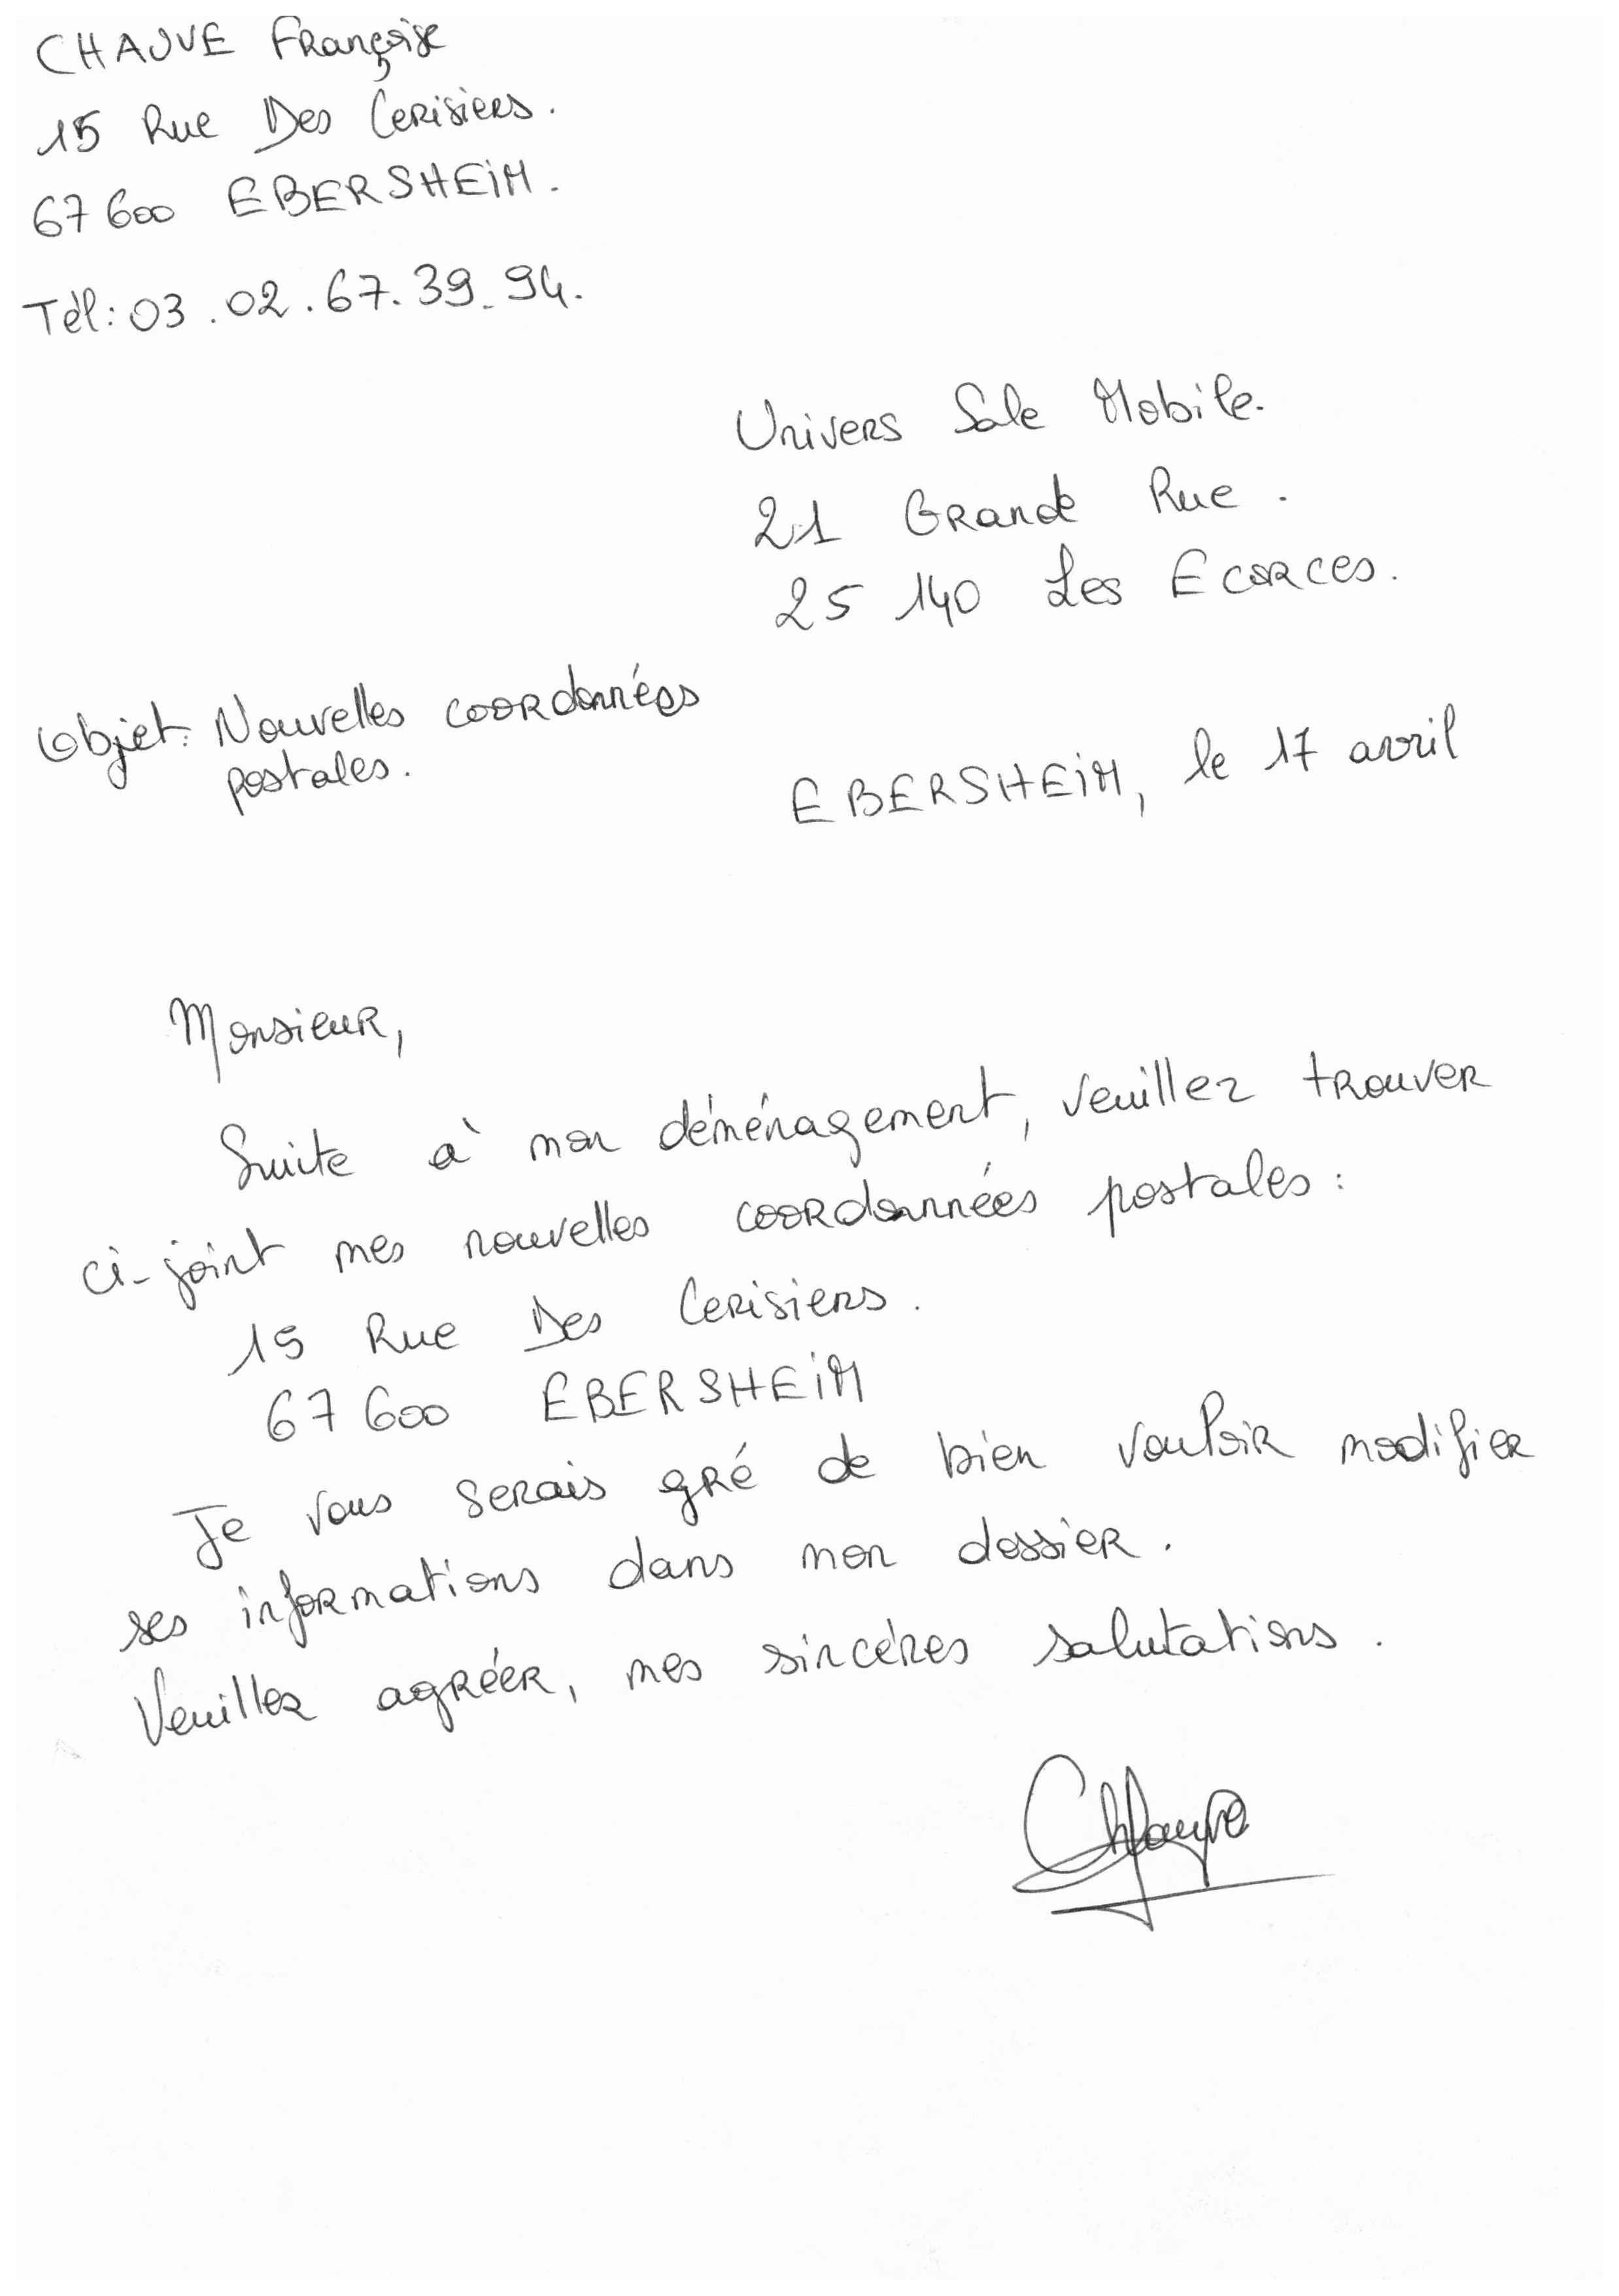 CHAUVE Françoise
15 Rue Des Cerisiers.
67600 EBERSHEIM.
Tél: 03.02.67.39.94.
Univers Sale Mobile.
21 Grande Rue.
25 140 Les Ecorces.
Objet: Nouvelles coordonnées
postales.
EBERSHEIM, le 17 avril
Monsieur,
Suite à mon déménagement, veuillez trouver
ci-joint mes nouvelles coordonnées postales:
15 Rue Des Cerisiers.
67600 EBERSHEIM
Je vous serais gré de bien vouloir modifier
ses informations dans mon dossier.
Veuillez agréer, mes sincéres salutations.
Chauve